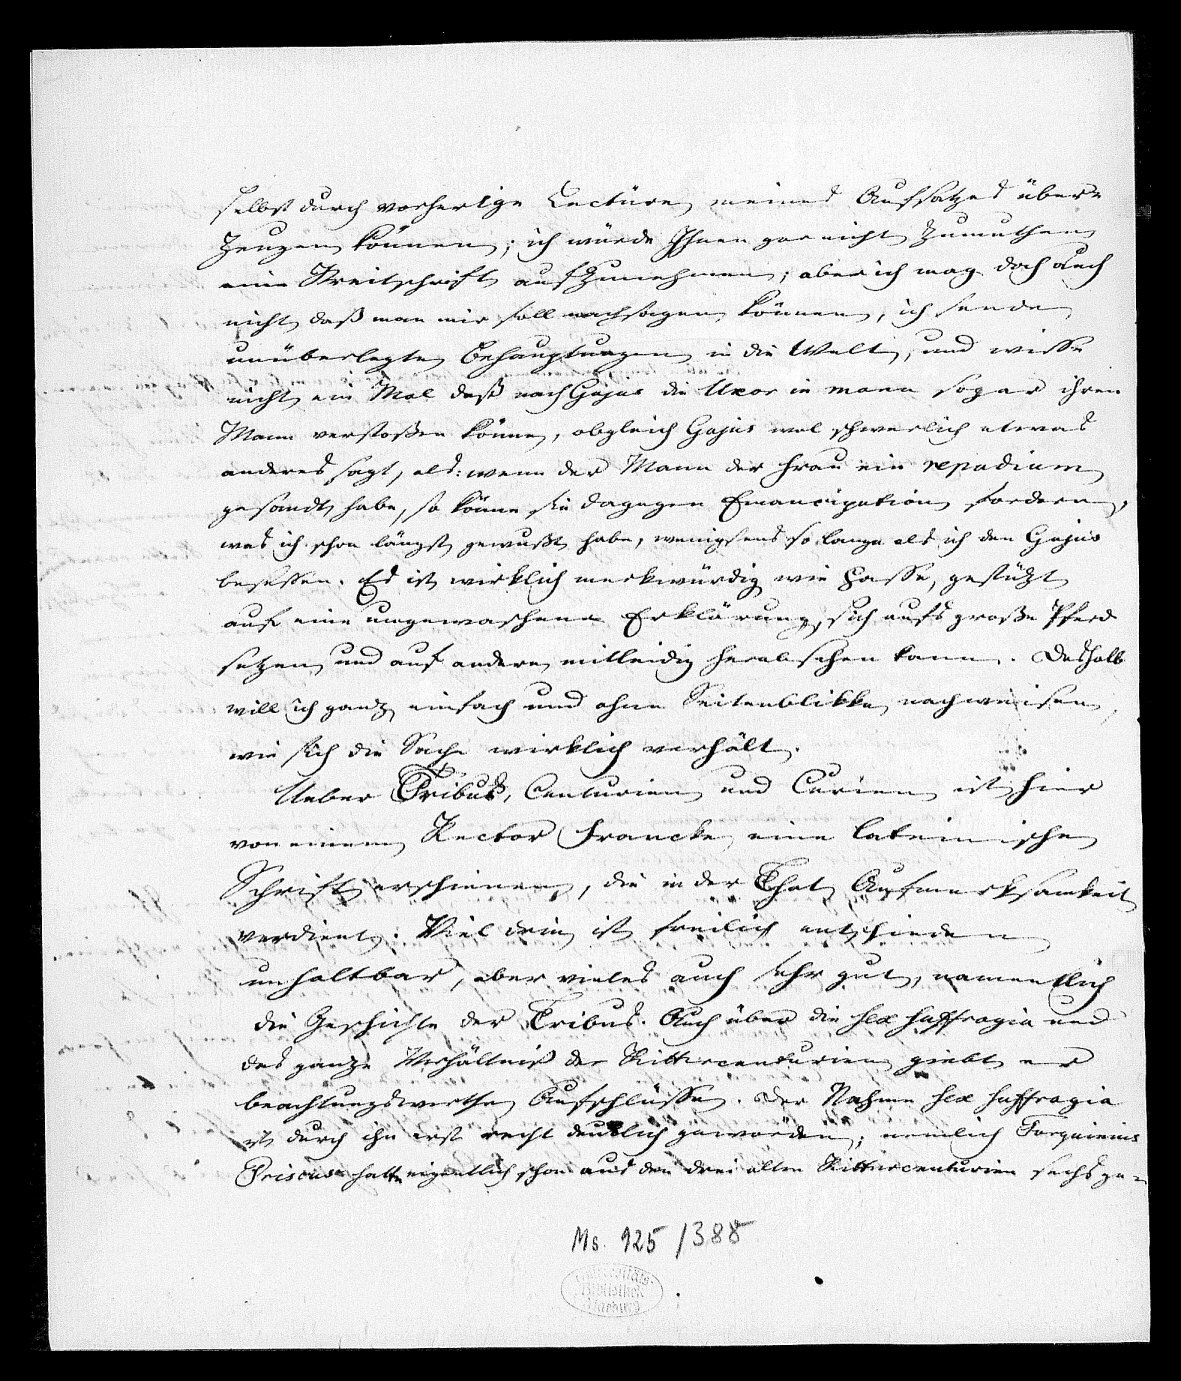 selbst durch vorherige Lectüre meines Aufsatzes über-
zeugen können; ich würde Ihnen gar nicht zumuthen
eine Streitschrift aufzunehmen; aber ich mag doch auch
nicht, daß man mir soll nachsagen können, ich sende
unüberlegte Behauptungen in die Welt, und wisse
nicht ein Mal daß nach Gajus die Uxor in manu sogar ihren
Mann verstoßen könne, obgleich Gajus wol schwerlich etwas
anderes sagt, als: wenn der Mann der Frau ein repudium
gesandt habe, so könne sie dagegen Emancipation fordern,
was ich schon längst gewußt habe, wenigstens so lange als ich den Gajus
besessen. Es ist wirklich merkwürdig wie Hasse, gestützt
auf eine ungewaschene Erklärung, sich aufs große Pferd
setzen und auf andere mitleidig herabsehen kann. Deshalb
will ich ganz einfach und ohne Seitenblikke nachweisen,
wie sich die Sache wirklich verhält.
Ueber Tribus, Centurien und Curien ist hier
von einem Rector Francke eine lateinische
Schrift erschienen, die in der That Aufmerksamkeit
verdient. Viel drin ist freilich entschieden
unhaltbar, aber vieles auch sehr gut, namentlich
die Geschichte der Tribus. Auch über die sex suffragia und
das ganze Verhältniß der Rittercenturien giebt er
beachtungswerthe Aufschlüsse. Der Nahme sex suffragia
ist durch ihn erst recht deutlich geworden; nemlich Tarquinius
Priscus hatte eigentlich schon aus den drei alten Rittercenturien sechs ge-
Ms. 925/388
Universitäts-
Bibliothek
Marburg